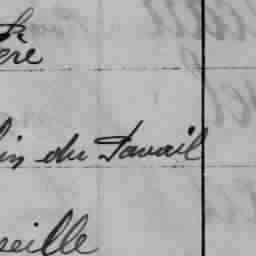 ère
in du Travail
seille